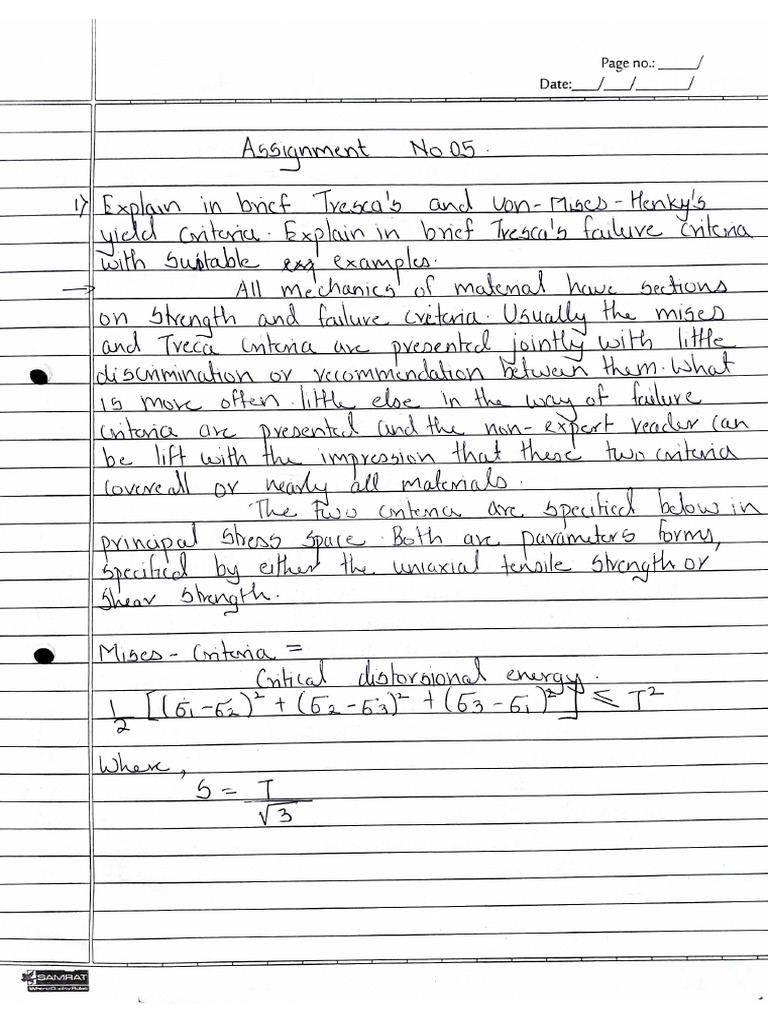 Page no.: _____/
Date:___/___/______/
Assignment No 05.
1) Explain in brief Tresca's and Von-Mises-Henky's
yield criteria. Explain in brief Tresca's failure criteria
with suitable examples.
→ All mechanics of material have sections
on strength and failure criteria. Usually the mises
and Treca criteria are presented jointly with little
discrimination or recommendation between them. What
is more often. little else in the way of failure
criteria are presented and the non-expert reader can
be lift with the impression that these two criteria
covere all or nearly all materials.
The two criteria are specified below in
principal stress space. Both are parameters forms,
specified by either the uniaxial tensile strength or
shear strength.
Mises - Criteria =
Critical distorsional energy.
1/2 [(σ1-σ2)² + (σ2-σ3)² + (σ3-σ1)²] ≤ T²
Where,
S = T/√3
SAMRAT